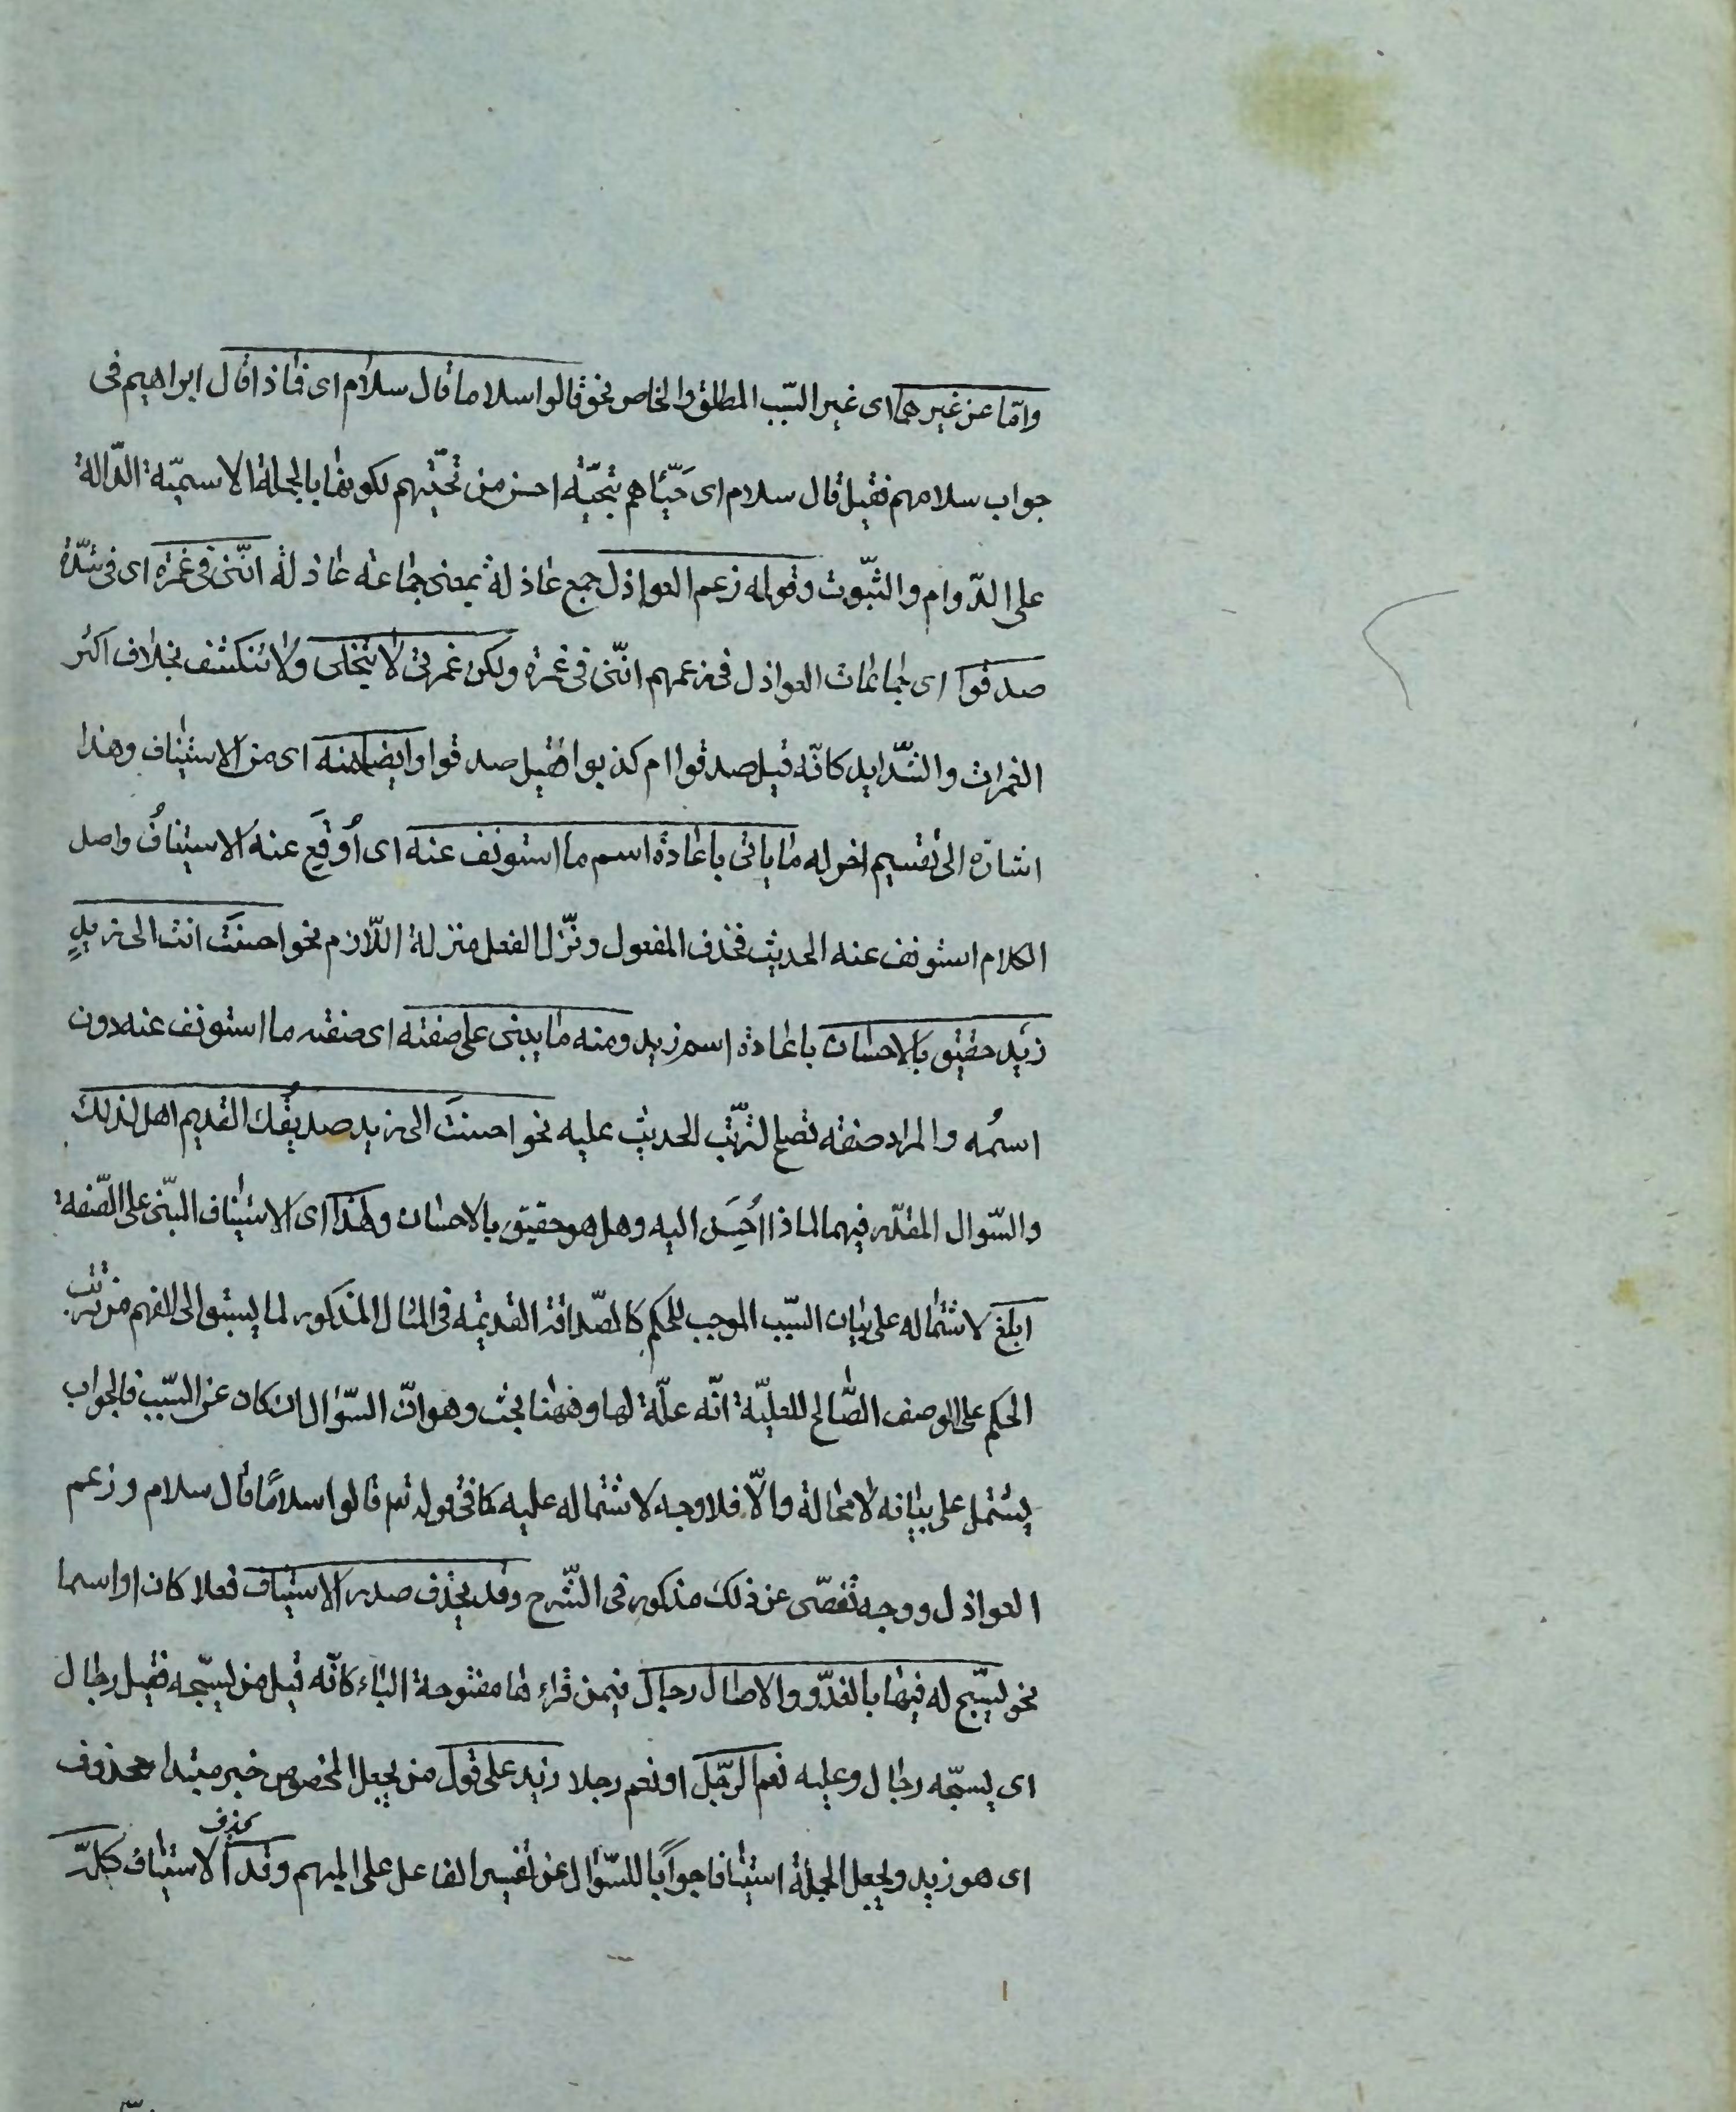 وامّا عن غيرهما اى غير السّبب المطلق والخاص نحو قالوا سلاما قال سلام اى فماذا قال ابراهيم فى
جواب سلامهم فقيل قال سلام اى حَيّاهم بتحيّة احسن من تحيّتهم لكونها بالجملة الاسميّة الدّالة
على الدّوام والثّبوت وقوله زعم العواذل جمع عاذلة بمعنى جماعة عاذلة انّنى فى غمرة اى فى شدّة
صدقوا اى جماعات العواذل فى زعمهم انّنى فى غمرة ولكن غمرتى لا ينجلى ولا تنكشف بخلاف اكثر
الغمرات والشّدايد كانّه قيل صدقوا ام كذبوا فقيل صدقوا وايضا منه اى من الاستيناف وهذا
اشارة الى تقسيم اخر له ما ياتى باعادة اسم ما استونف عنه اى اُوقِعَ عنه الاستينافُ واصل
الكلام استونف عنه الحديث فحذف المفعول ونزّل الفعل منزلة اللّازم نحو احسنتَ انت الى زيدٍ
زيد حقيق بالاحسان باعادة اسم زيد ومنه ما يبنى على صفته اى صفة ما استونف عنه دون
اسمُه والمراد صفة تصلح لترتّب الحديث عليه نحو احسنتَ الى زيد صديقُك القديم اهل لذلك
والسّوال المقدّر فيهما لماذا اُحسِنَ اليه وهل هو حقيق بالاحسان وهذا اى الاستيناف المبنى على الصّفة
ابلغ لاشتماله على بيان السّبب الموجب للحكم كالصّداقة القديمة فى المثال المذكور لما يسبق الى الفهم من ترتّب
الحكم على الوصف الصّالح للعليّة انّه علّة لها وههنا بحث وهو انّ السّوال ان كان عن السّبب فالجواب
يشتمل على بيانه لا محالة والّا فلا وجه لاشتماله عليه كما فى قوله تع قالوا سلامًا قال سلام وزعم
العواذل ووجه تفصّى عن ذلك مذكور فى الشّرح وقد يحذف صدر الاستيناف فعلا كان او اسما
نحو يسبّح له فيها بالغدّو والاصال رجال فيمن قراءها مفتوحة الباء كانّه قيل من يسبّحه فقيل رجال
اى يسبّحه رجال وعليه نعم الرّجل او نعم رجلا زيد على قول من يجعل المخصوص خبر مبتدا محذوف
اى هو زيد ويجعل الجملة استينافا جوابًا للسّوال عن تفسير الفاعل على المبهم وقد يحذف الاستيناف كلّه